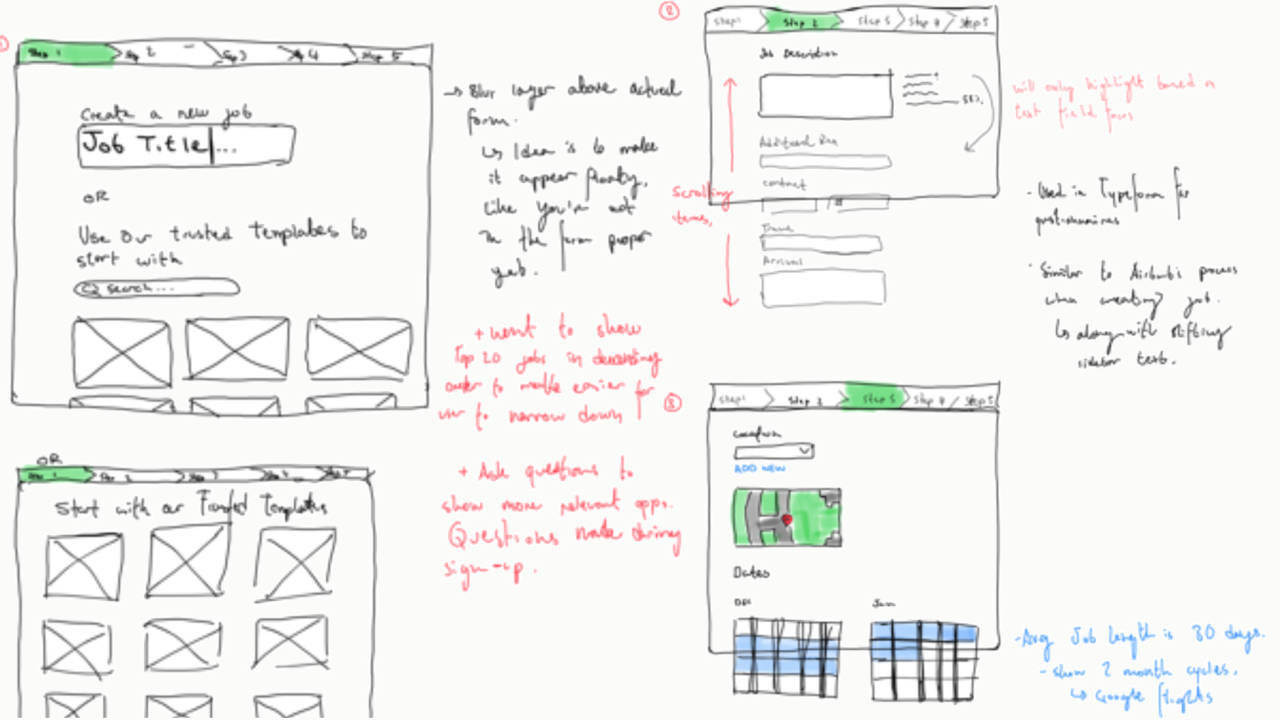 Step 1
Step 2
Step 3
Step 4
Step 5
Create a new job
Job Title|...
OR
Use our trusted templates to
start with
search...
→ Blur layer above actual
form.
↳ Idea is to make
it appear
like you're not
in the form proper
yet.
+ want to show
Top 20 jobs in
order to make easier for
user to narrow down
+ Ask questions to
show more relevant apps.
Questions made during
sign-up.
OR
Start with our Trusted Templates
2
Step 1
Step 2
Step 3
Step 4
Step 5
Job Description
Additional
contact
scrolling
items.
will only highlight based on
text field focus
- Used in Typeform for
questionnaires
- Similar to Airbnb's process
when creating job.
↳ along with shifting
sidebar text.
3
Step 1
Step 2
Step 3
Step 4
Step 5
Location
ADD NEW
Dates
Dec
Jan
- Avg Job length is 30 days.
- show 2 month cycles.
↳ Google flights